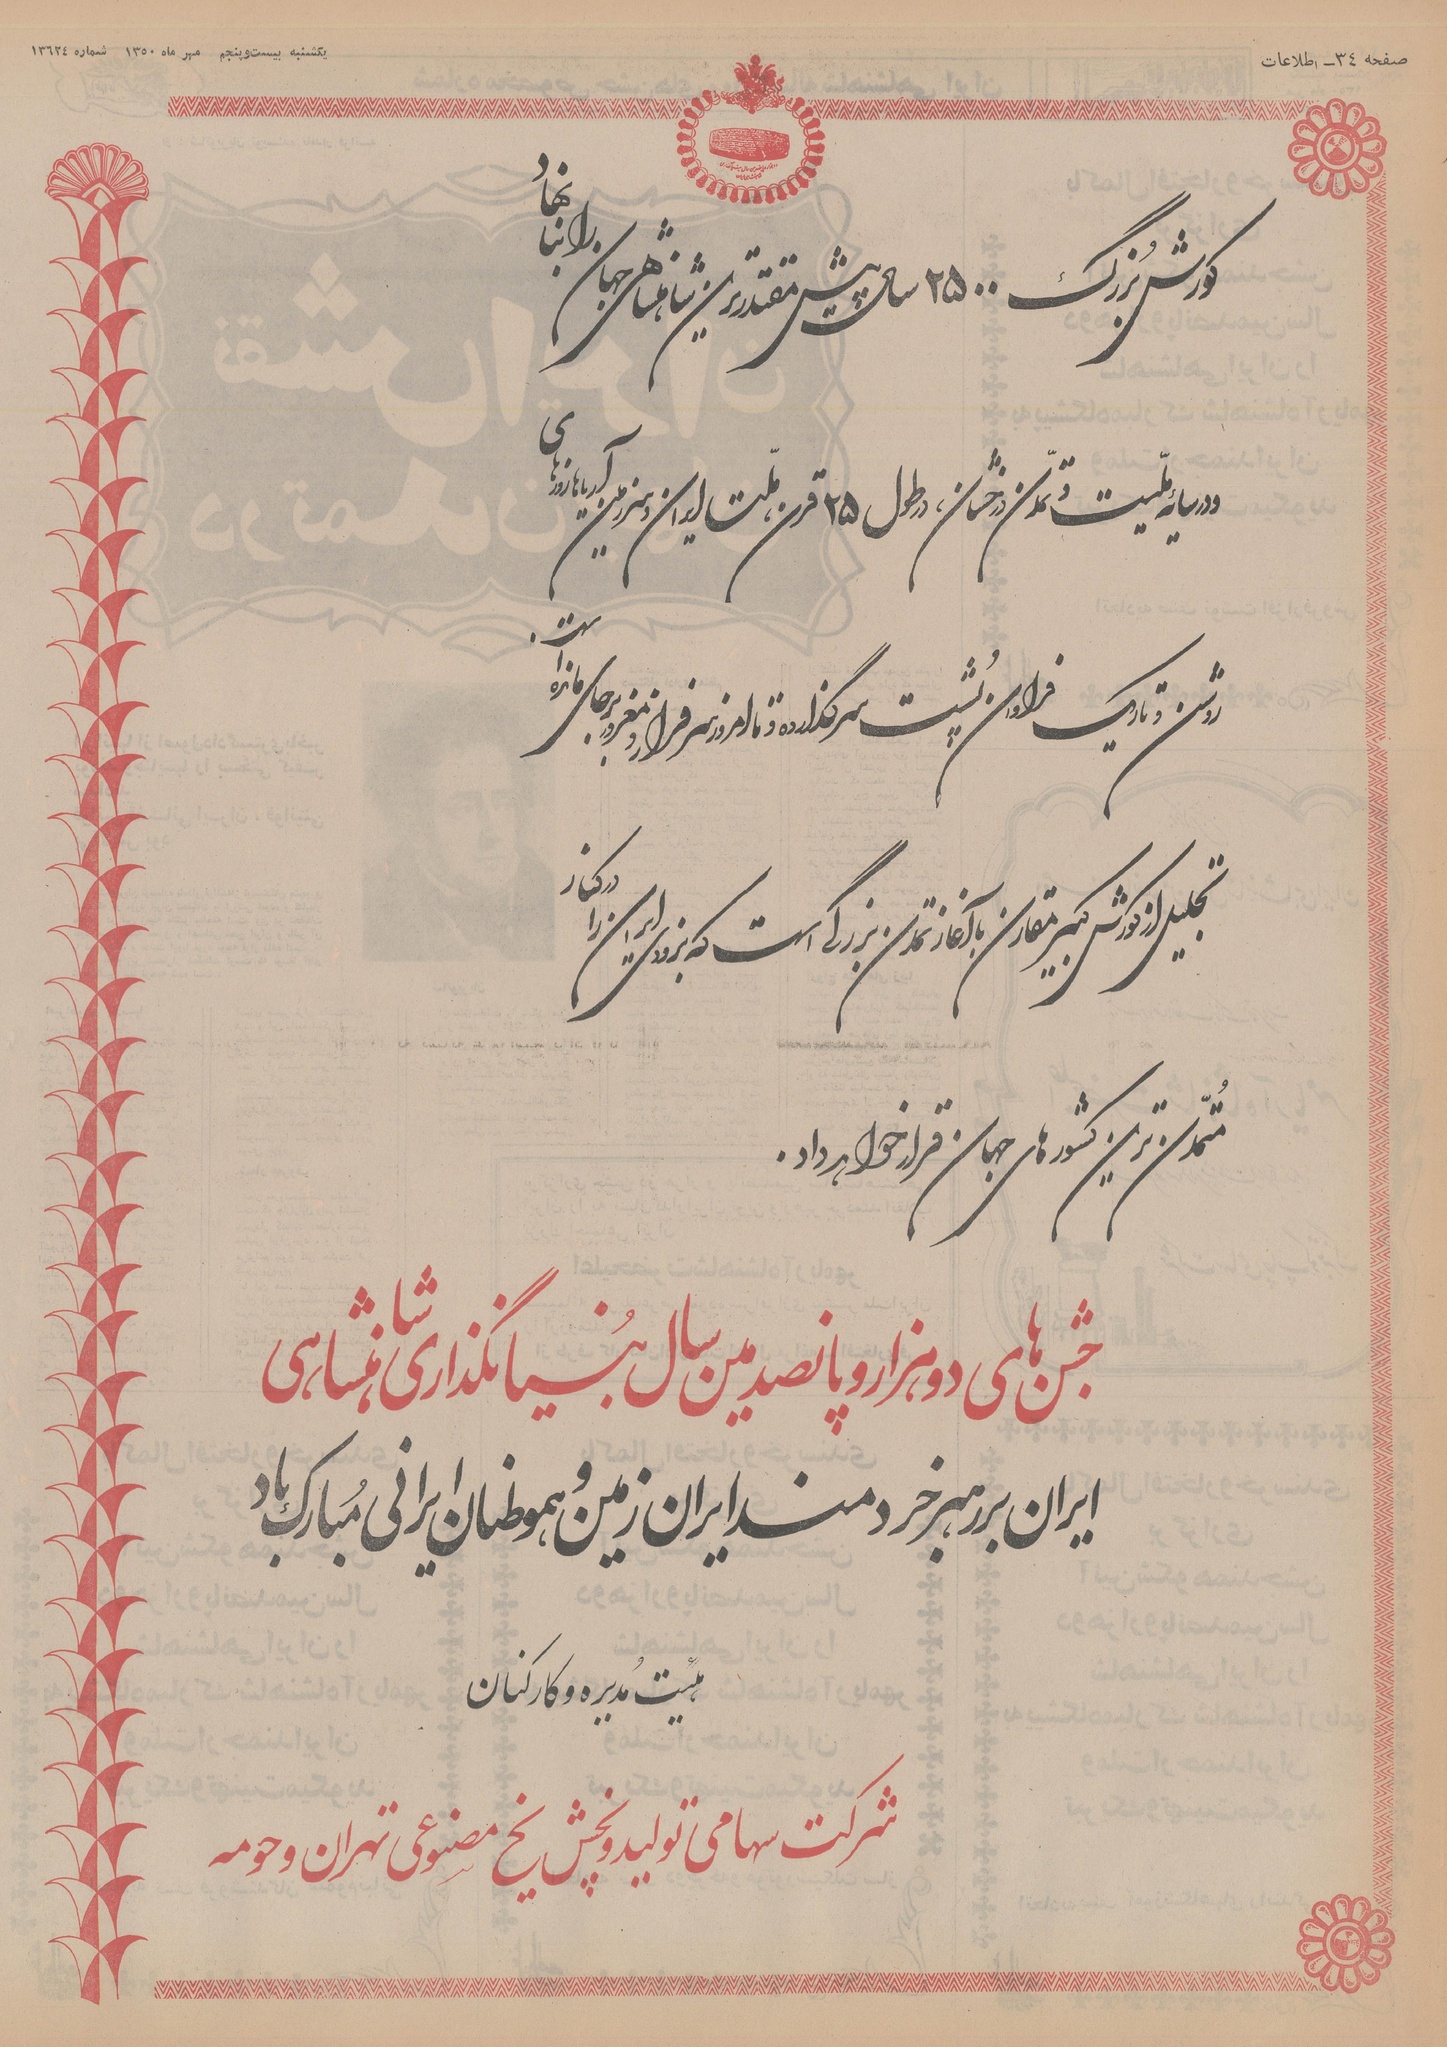 صفحه ۳۴ـ اطلاعات
یکشنبه بیست‌وپنجم مهر ماه ۱۳۵۰ شماره ۱۳۶۲۴
کورش بُزرگ ۲۵۰۰ سال پیش مقتدرترین شاهنشاهی جهان را بنا نهاد
و در سایهٔ ملّیت و تمدّن درخشان، در طول ۲۵ قرن، ملّت ایران و سرزمین آریاها روزهای
روشن و تاریک فراوان پُشت سر گذارده و تا امروز سرفراز و مغرور برجای مانده است.
تجلیل از کورش کبیر مقارن با آغاز تمدن بزرگی است که بزودی ایران را در کنار
مُتمّدن ترین کشورهای جهان قرار خواهد داد.
جشن های دو هزار و پانصدمین سال بُنیانگذاری شاهنشاهی
ایران بر رهبر خردمند ایران زمین و هموطنان ایرانی مُبارک باد
هیئت مُدیره و کارکنان
شرکت سهامی تولید و پخش یخ مصنوعی تهران و حومه